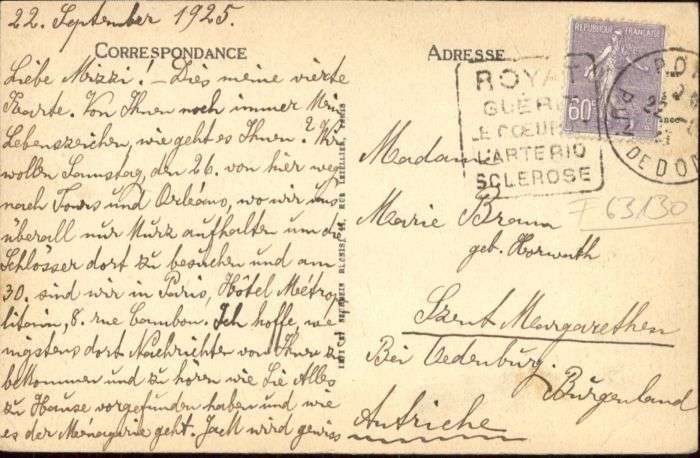 22. September 1925.
CORRESPONDANCE
Liebe Mizzi! – Dies meine vierte
Karte. Von Ihnen noch immer kein
Lebenszeichen, wie geht es Ihnen? Wir
wollen Samstag, den 26. von hier weg
nach Tours und Orléans, wo wir uns
überall nur kurz aufhalten um die
Schlösser dort zu besuchen und am
30. sind wir in Paris, Hôtel Métropo-
litain, 8. rue Cambon. Ich hoffe, we-
nigstens dort Nachrichten von Ihnen zu
bekommen und zu hören wie Sie Alles
zu Hause vorgefunden haben und wie
es der Ménagerie geht. Jack wird gewiss
ADRESSE
ROYAT
GUÉRIT
LE COEUR
L'ARTERIO
SCLEROSE
REPUBLIQUE FRANÇAISE
60c
PUY DE DOME
22
F 63130
Madame
Marie Braun
geb. Horwath
Szent Margarethen
Bei Oedenburg,
Burgenland
Autriche